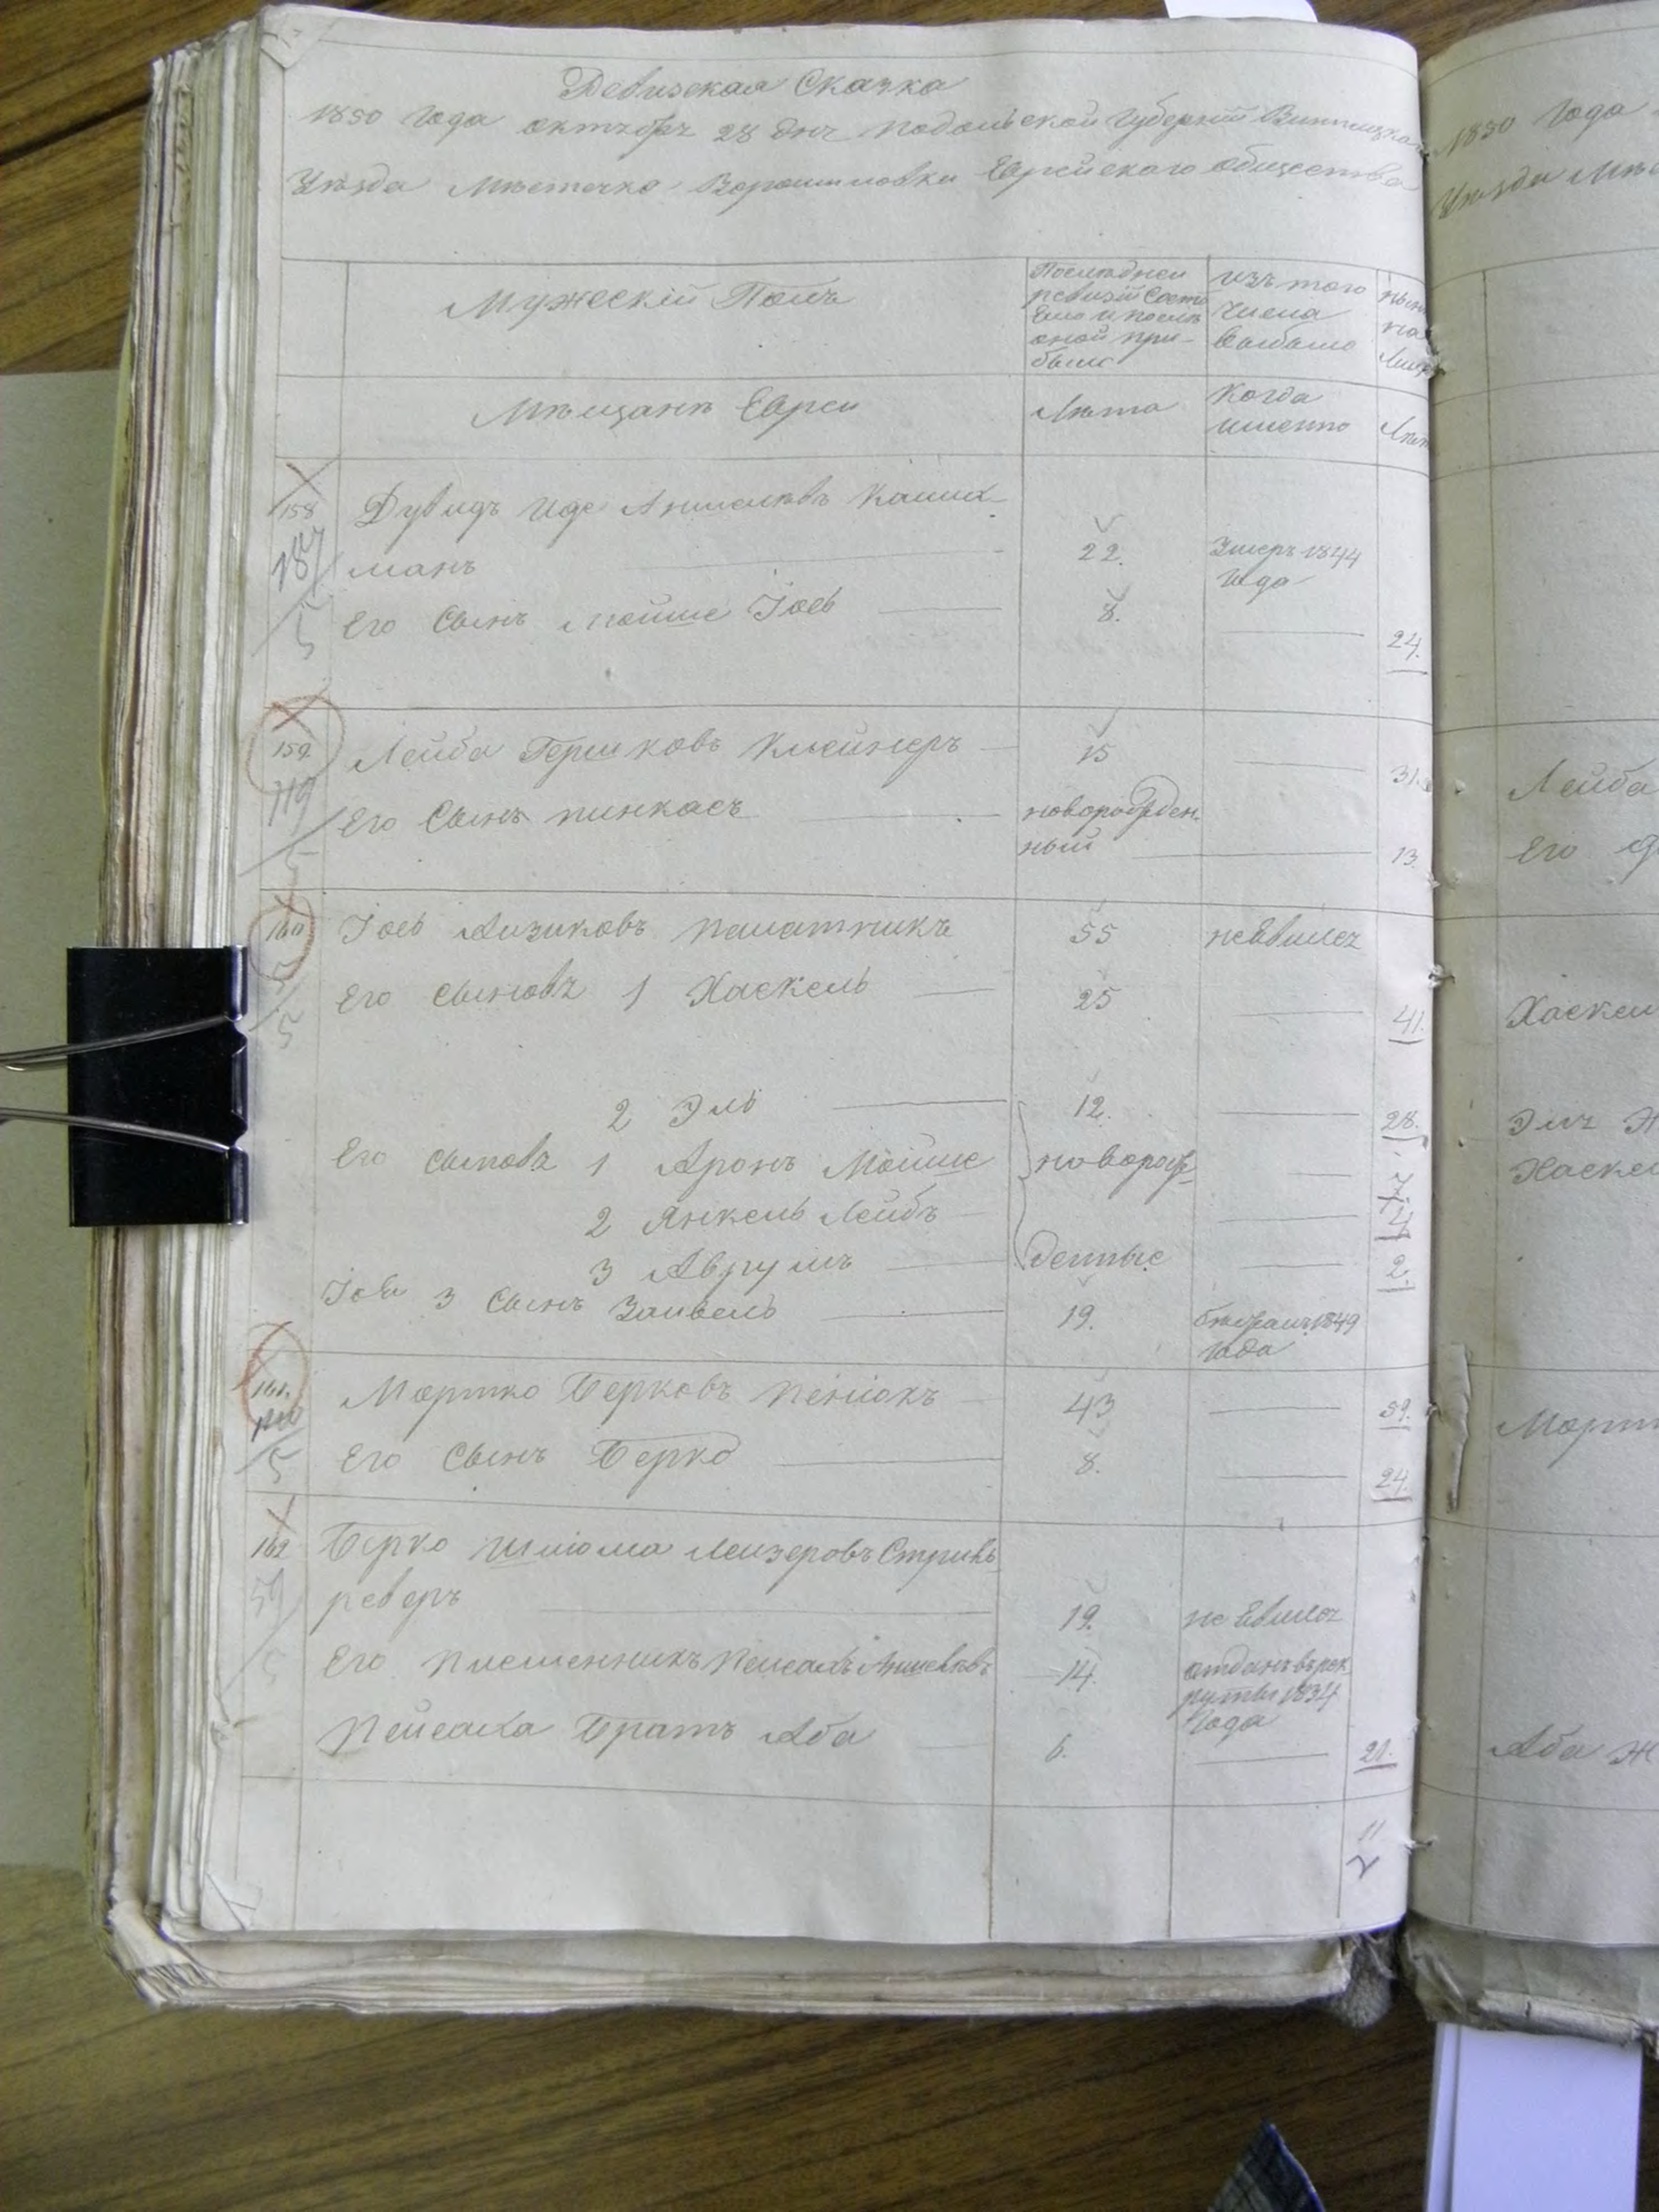 Ревизская Сказка
1850 Года октября 28 дня Подольской Губернии Винницкаго
Уезда Местечка Ворошиловки Еврейского общества
Мужескій Полъ
Последней
ревизіи Состо
яло и после
оной при-
было
изъ того
Числа
выбыло
Мещане Евреи
Лета
Когда
именно
158
Дувидъ Иде Аншелевъ Каших-
187
манъ
22.
Умеръ 1844
Года
5
Его Сынъ Мойше Іось
8.
24.
159.
Лейба Гершковъ Клейнеръ
15
31.
119
Его Сынъ Пинкасъ
новорожден-
5
ный
13.
160
Іось Айзиковъ Палатникъ
55
неявился
5
Его Сыновья 1 Хаскель
25
41.
5
2 Эль
12.
28.
Его Сыновья 1 Аронъ Мойше
новорож-
7.
2 Янкель Лейбъ
4
3 Аврумъ
денные
2.
Іося 3 Сынъ Зайвель
19.
бежалъ 1849
Года
161.
Мортко Берковъ Пеніокъ
43
59.
5
Его Сынъ Берко
8.
24.
162
Берко Шліома Лейзеровъ Стрель-
59
реверъ
19.
не явился
5
Его Племенникъ Пейсахъ Аншелевъ
14.
отданъ въ рек
руты 1834
Года
Пейсаха Братъ Аба
6.
21.
11
1850 Года
Уезда Мес
Лейба
Его
Хаскел
Эля Ж
Хаскел
Морт
Аба Ж